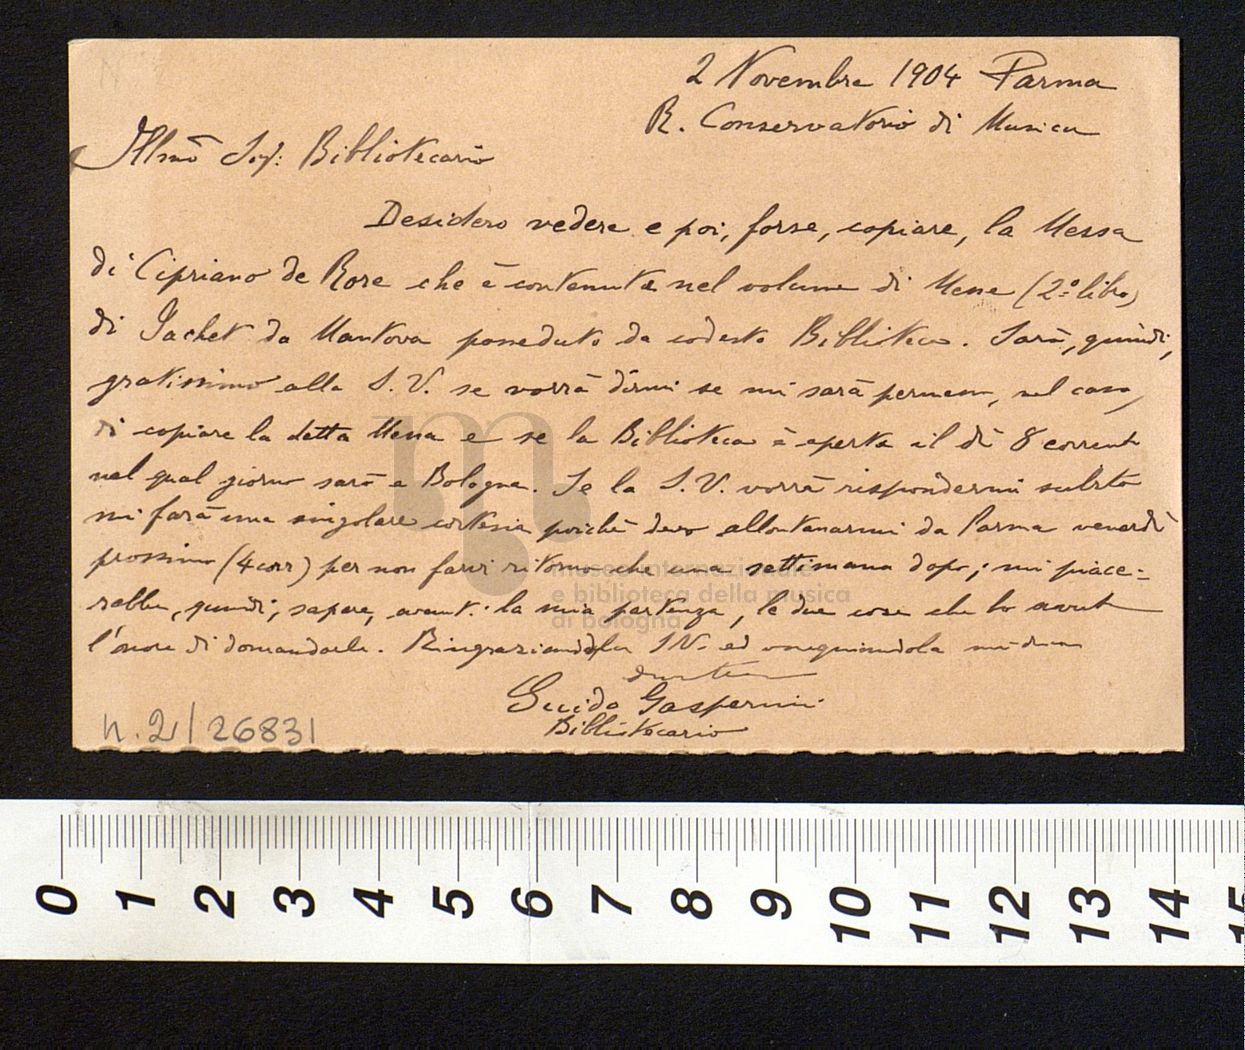 2 Novembre 1904 Parma
R. Conservatorio di Musica
Illmo Sig: Bibliotecario
Desidero vedere e poi, forse, copiare, la Messa
di Cipriano de Rore che è contenuta nel volume di Messe (2º libro)
di Jachet da Mantova posseduto da codesta Biblioteca. Sarò, quindi,
gratissimo alla S. V. se vorrà dirmi se mi sarà permesso, nel caso,
di copiare la detta Messa e se la Biblioteca è aperta il dì 8 corrente
nel qual giorno sarò a Bologna. Se la S. V. vorrà rispondermi subito
mi farà una singolare cortesia poichè devo allontanarmi da Parma venerdì
prossimo (4 corr) per non farvi ritorno che una settimana dopo; mi piace-
rebbe, quindi, sapere, avanti la mia partenza, le due cose che ho avuto
l'onore di domandarle. Ringraziandola S.V. ed ossequiandola mi
Guido Gasperini
Bibliotecario
n. 2/26831
museo internazionale
e biblioteca della musica
di bologna
0 1 2 3 4 5 6 7 8 9 10 11 12 13 14 15